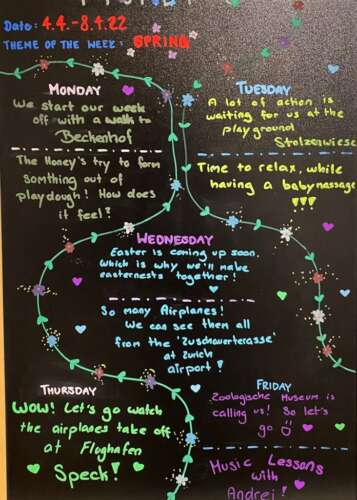 Date: 4.4.-8.4.22
THEME OF THE WEEK: SPRING
MONDAY
We start our week
off with a walk to
Beckenhof
The Honey's try to form
somthing out of
playdough! How does
it feel?
TUESDAY
A lot of action is
waiting for us at the
playground
Stolzenwiese
Time to relax, while
having a babymassage
WEDNESDAY
Easter is coming up soon,
which is why we'll make
easternests together!
So many Airplanes!
We can see them all
from the 'Zuschauerterasse'
at Zurich
airport!
THURSDAY
WOW! Let's go watch
the airplanes take off
at Flughafen
Speck!
FRIDAY
Zoologische Museum is
calling us! So let's
go
Music Lessons
with
Andrei!